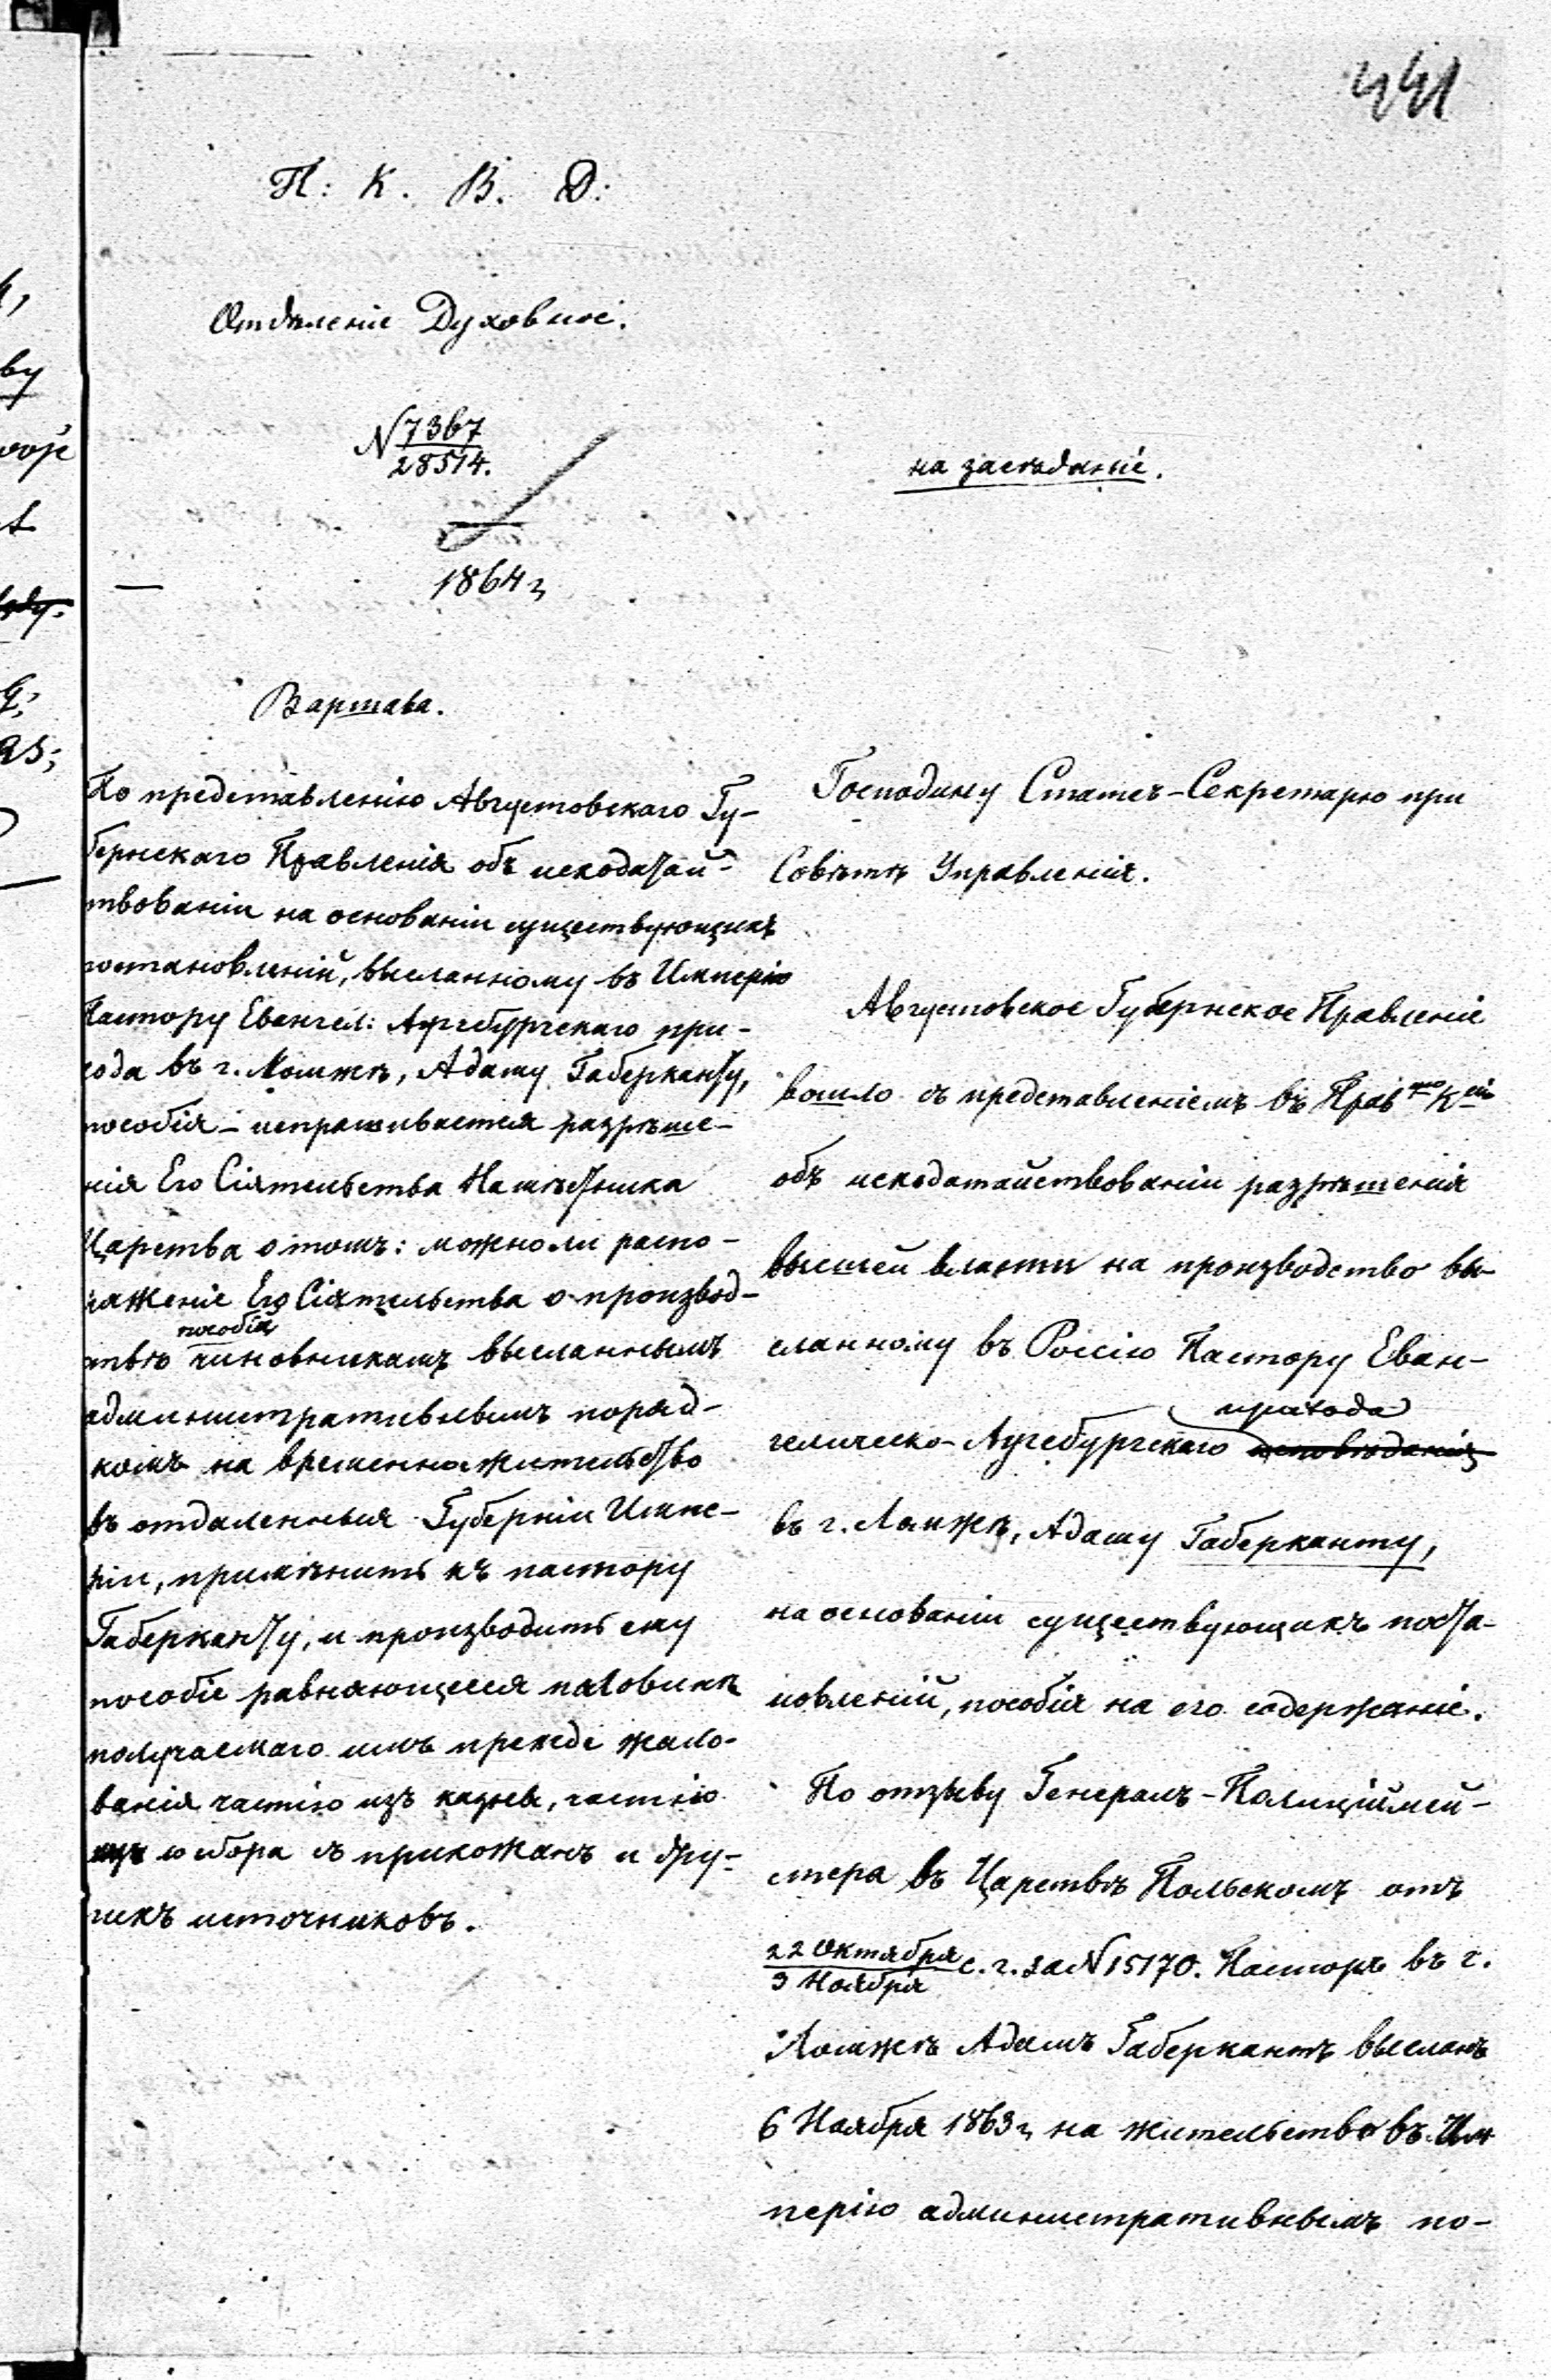 441
П: К. В. Д:
Отдѣленіе Духовное.
N 7367
28514.
1864 г
Варшава.
По представленію Августовскаго Гу-
бернскаго Правленія объ исходатай-
ствованіи на основаніи существующихъ
постановленій, высланному въ Имперію
Пастору Евангел: Аугсбургскаго при-
хода въ г. Ломжѣ, Адаму Габерканту,
пособія – испрашивается разрѣше-
нія Его Сіятельства Намѣстника
Царства о томъ: можно ли распо-
ряженіе Его Сіятельства о производ-
пособія
ствѣ чиновникамъ высланнымъ
административнымъ поряд-
комъ на временножительство
въ отдаленныя Губерніи Импе-
ріи, примѣнить къ пастору
Габерканту, и производить ему
пособіе равняющееся половинѣ
получаемаго имъ прежде жало-
ванія частію изъ казны, частію
сбора съ прихожанъ и дру-
гихъ источниковъ.
на засѣданіе.
Господину Статсъ-Секретарю при
Совѣтѣ Управленія.
Августовское Губернское Правленіе
вошло съ представленіемъ въ Прав ную К сію
объ исходатайствованіи разрѣшенія
высшей власти на производство вы-
сланному въ Россію Пастору Еван-
прихода
гелическо-Аугсбургскаго исповѣданія
въ г. Ломжѣ, Адаму Габерканту,
на основаніи существующихъ поста-
новленій, пособія на его содержаніе.
По отзыву Генералъ-Полиціймей-
стера въ Царствѣ Польскомъ отъ
22 Октября
3 Ноября с. г. за N 15170. Пасторъ въ г.
Ломжѣ Адамъ Габеркантъ высланъ
6 Ноября 1863 г на жительство въ Им
перію административнымъ по-